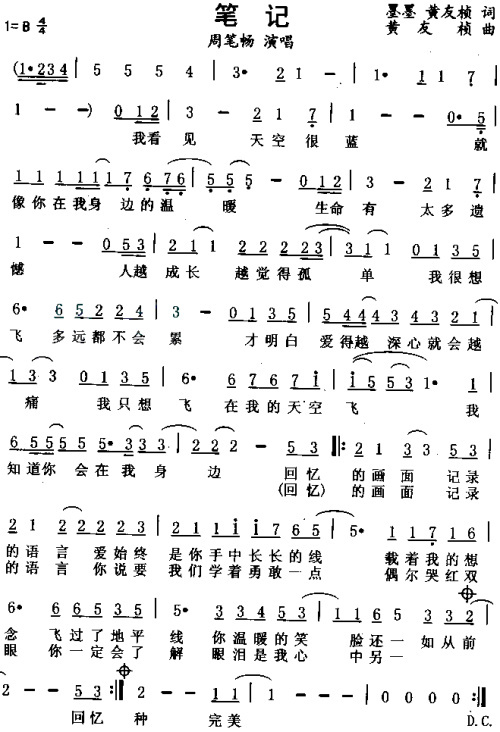 笔 记
墨墨 黄友桢 词
1=B 4/4
黄 友 桢 曲
周笔畅 演唱
(1·234 | 5 5 5 4 | 3· 2 1 - | 1· 1 1 7 |
1 - -) 0 1 2 | 3 - 2 1 7 | 1 - - 0· 5 |
我看 见 天空 很 蓝 就
1 1 1 1 1 1 7 6 7 6 | 5 5 5 - 0 1 2 | 3 - 2 1 7 |
像你在我身 边的温 暖 生命 有 太多 遗
1 - - 0 5 3 | 2 1 1 2 2 2 2 3 | 3 1 1 0 1 3 5 |
憾 人越 成长 越觉得孤 单 我很想
6· 6 5 2 2 4 | 3 - - 0 1 3 5 | 5 4 4 4 3 4 3 2 1 |
飞 多远都不会 累 才明白 爱得越 深心就会越
1 3 3 0 1 3 5 | 5· 6 7 6 7 1 | 1 5 5 3 1· 1 |
痛 我只想 飞 在我的天空 飞 我
6 5 5 5 5 5· 3 3 3 | 2 2 2 - 5 3 ‖: 2 1 3 3 5 3 |
知道你 会在我 身 边 回忆 的画面 记录
(回忆) 的画面 记录
2 1 1 2 3 4 | 5 2 1 1 1 7 6 5 | 5· 1 1 7 1 6 |
的语言 爱始终 是你手中长长的线 载着我的想
的语言 你说要 我们学着勇敢一点 偶尔哭红双
6· 6 6 5 3 5 | 5· 3 5 3 5 3 1 | 1 1 6 5 5 3 3 2 |
念 飞过了地平 线 你温暖的笑 脸还一如从前
眼 你一定会了 解 眼泪是我心 中另一
2 - - 5 3 :‖ 2 - - 1 1 | 1 - - - | 0 0 0 0 :‖
回忆 种 完美 D.C.